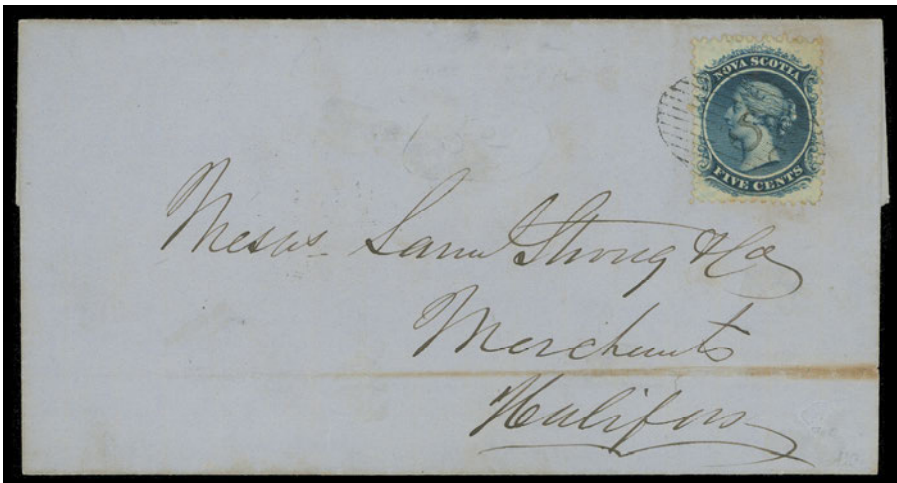 NOVA SCOTIA
5
FIVE CENTS
Messrs Saml Strong & Co
Merchants
Halifax